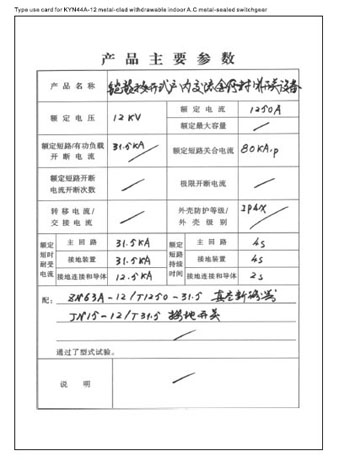 Type use card for KYN44A-12 metal-clad withdrawable indoor A.C metal-sealed switchgear
产品主要参数
产品名称 铠装移开式户内交流金属封闭开关设备
额定电压 12KV 额定电流 1250A
额定最大容量 /
额定短路/有功负载开断电流 31.5KA/ 额定短路关合电流 80KA.p
额定短路开断电流开断次数 / 极限开断电流 /
转移电流/交接电流 / 外壳防护等级/外壳级别 IP4X/
额定短时耐受电流 主回路 31.5KA 额定短路持续时间 主回路 4s
接地装置 31.5KA 接地装置 4s
接地连接和导体 12.5KA 接地连接和导体 2s
配: ZN63A-12/T1250-31.5 真空断路器
JN15-12/T31.5 接地开关
/
通过了型式试验。
说明 /